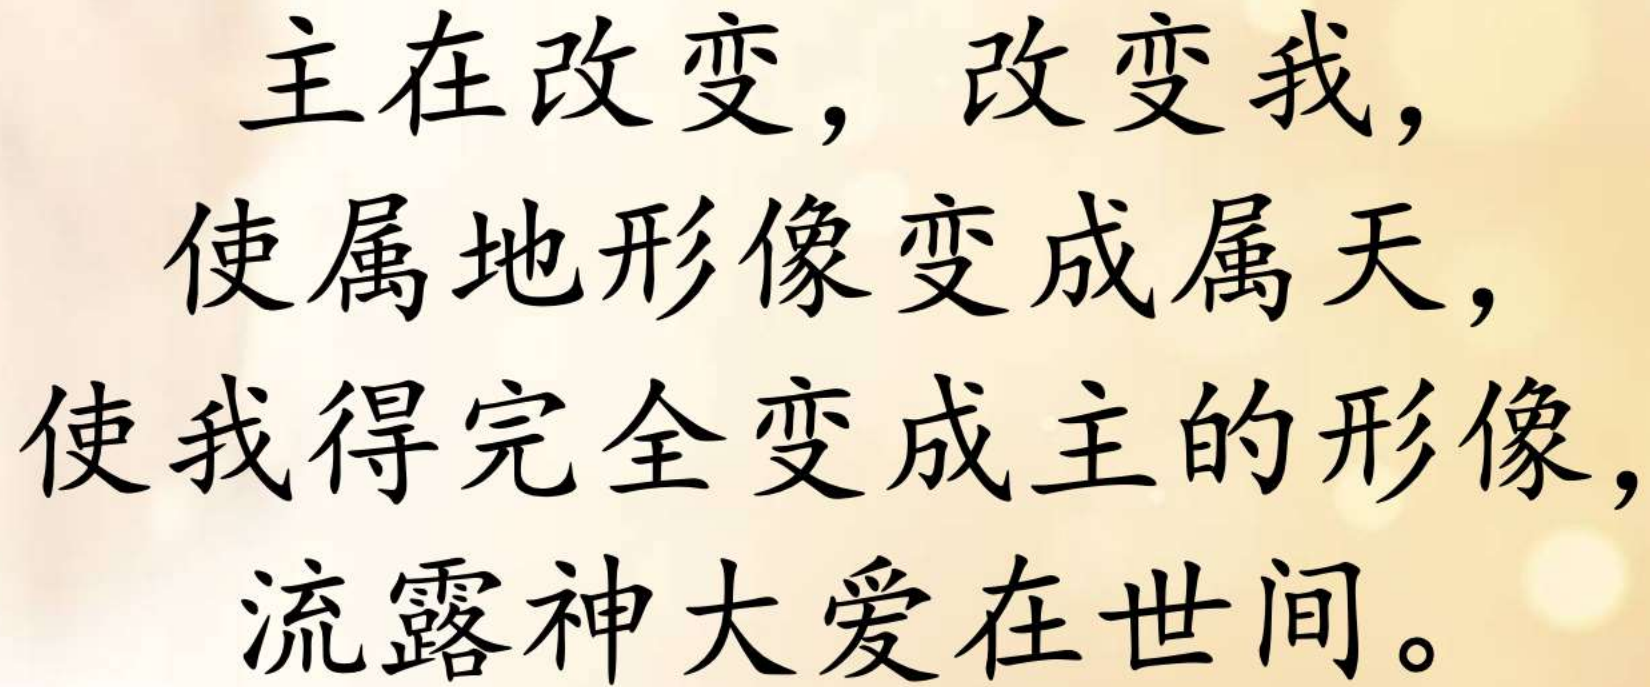 主在改变，改变我，
使属地形像变成属天，
使我得完全变成主的形像，
流露神大爱在世间。